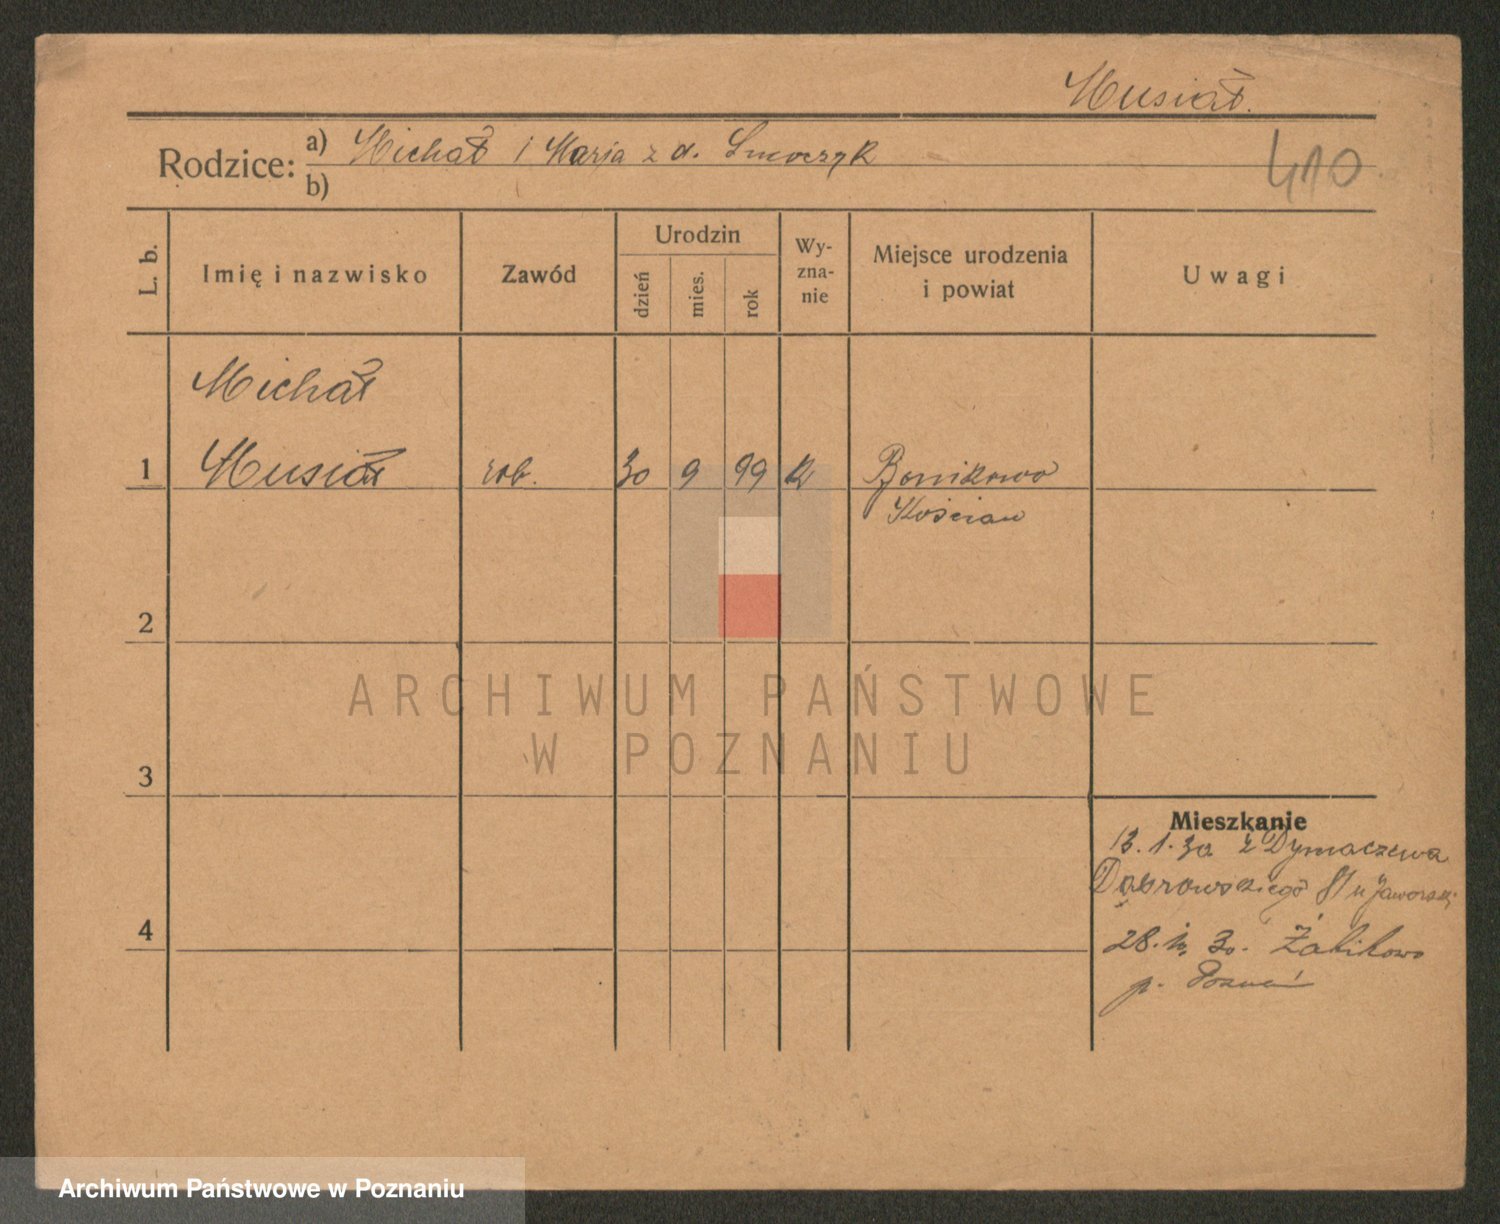 Musiał.
Rodzice: a) Michał i Marja z d. Smoczyk
b)
410
L. b.
Imię i nazwisko
Zawód
Urodzin
dzień
mies.
rok
Wy-
zna-
nie
Miejsce urodzenia
i powiat
Uwagi
Michał
1 Musiał rob. 30 9 99 k Bonikowo
Kościan
2
ARCHIWUM PAŃSTWOWE
W POZNANIU
3
Mieszkanie
13. 1. 30 z Dymaczewa
Dąbrowskiego u Jaworski
4
28. 30. Żabikowo
p. Poznań
Archiwum Państwowe w Poznaniu